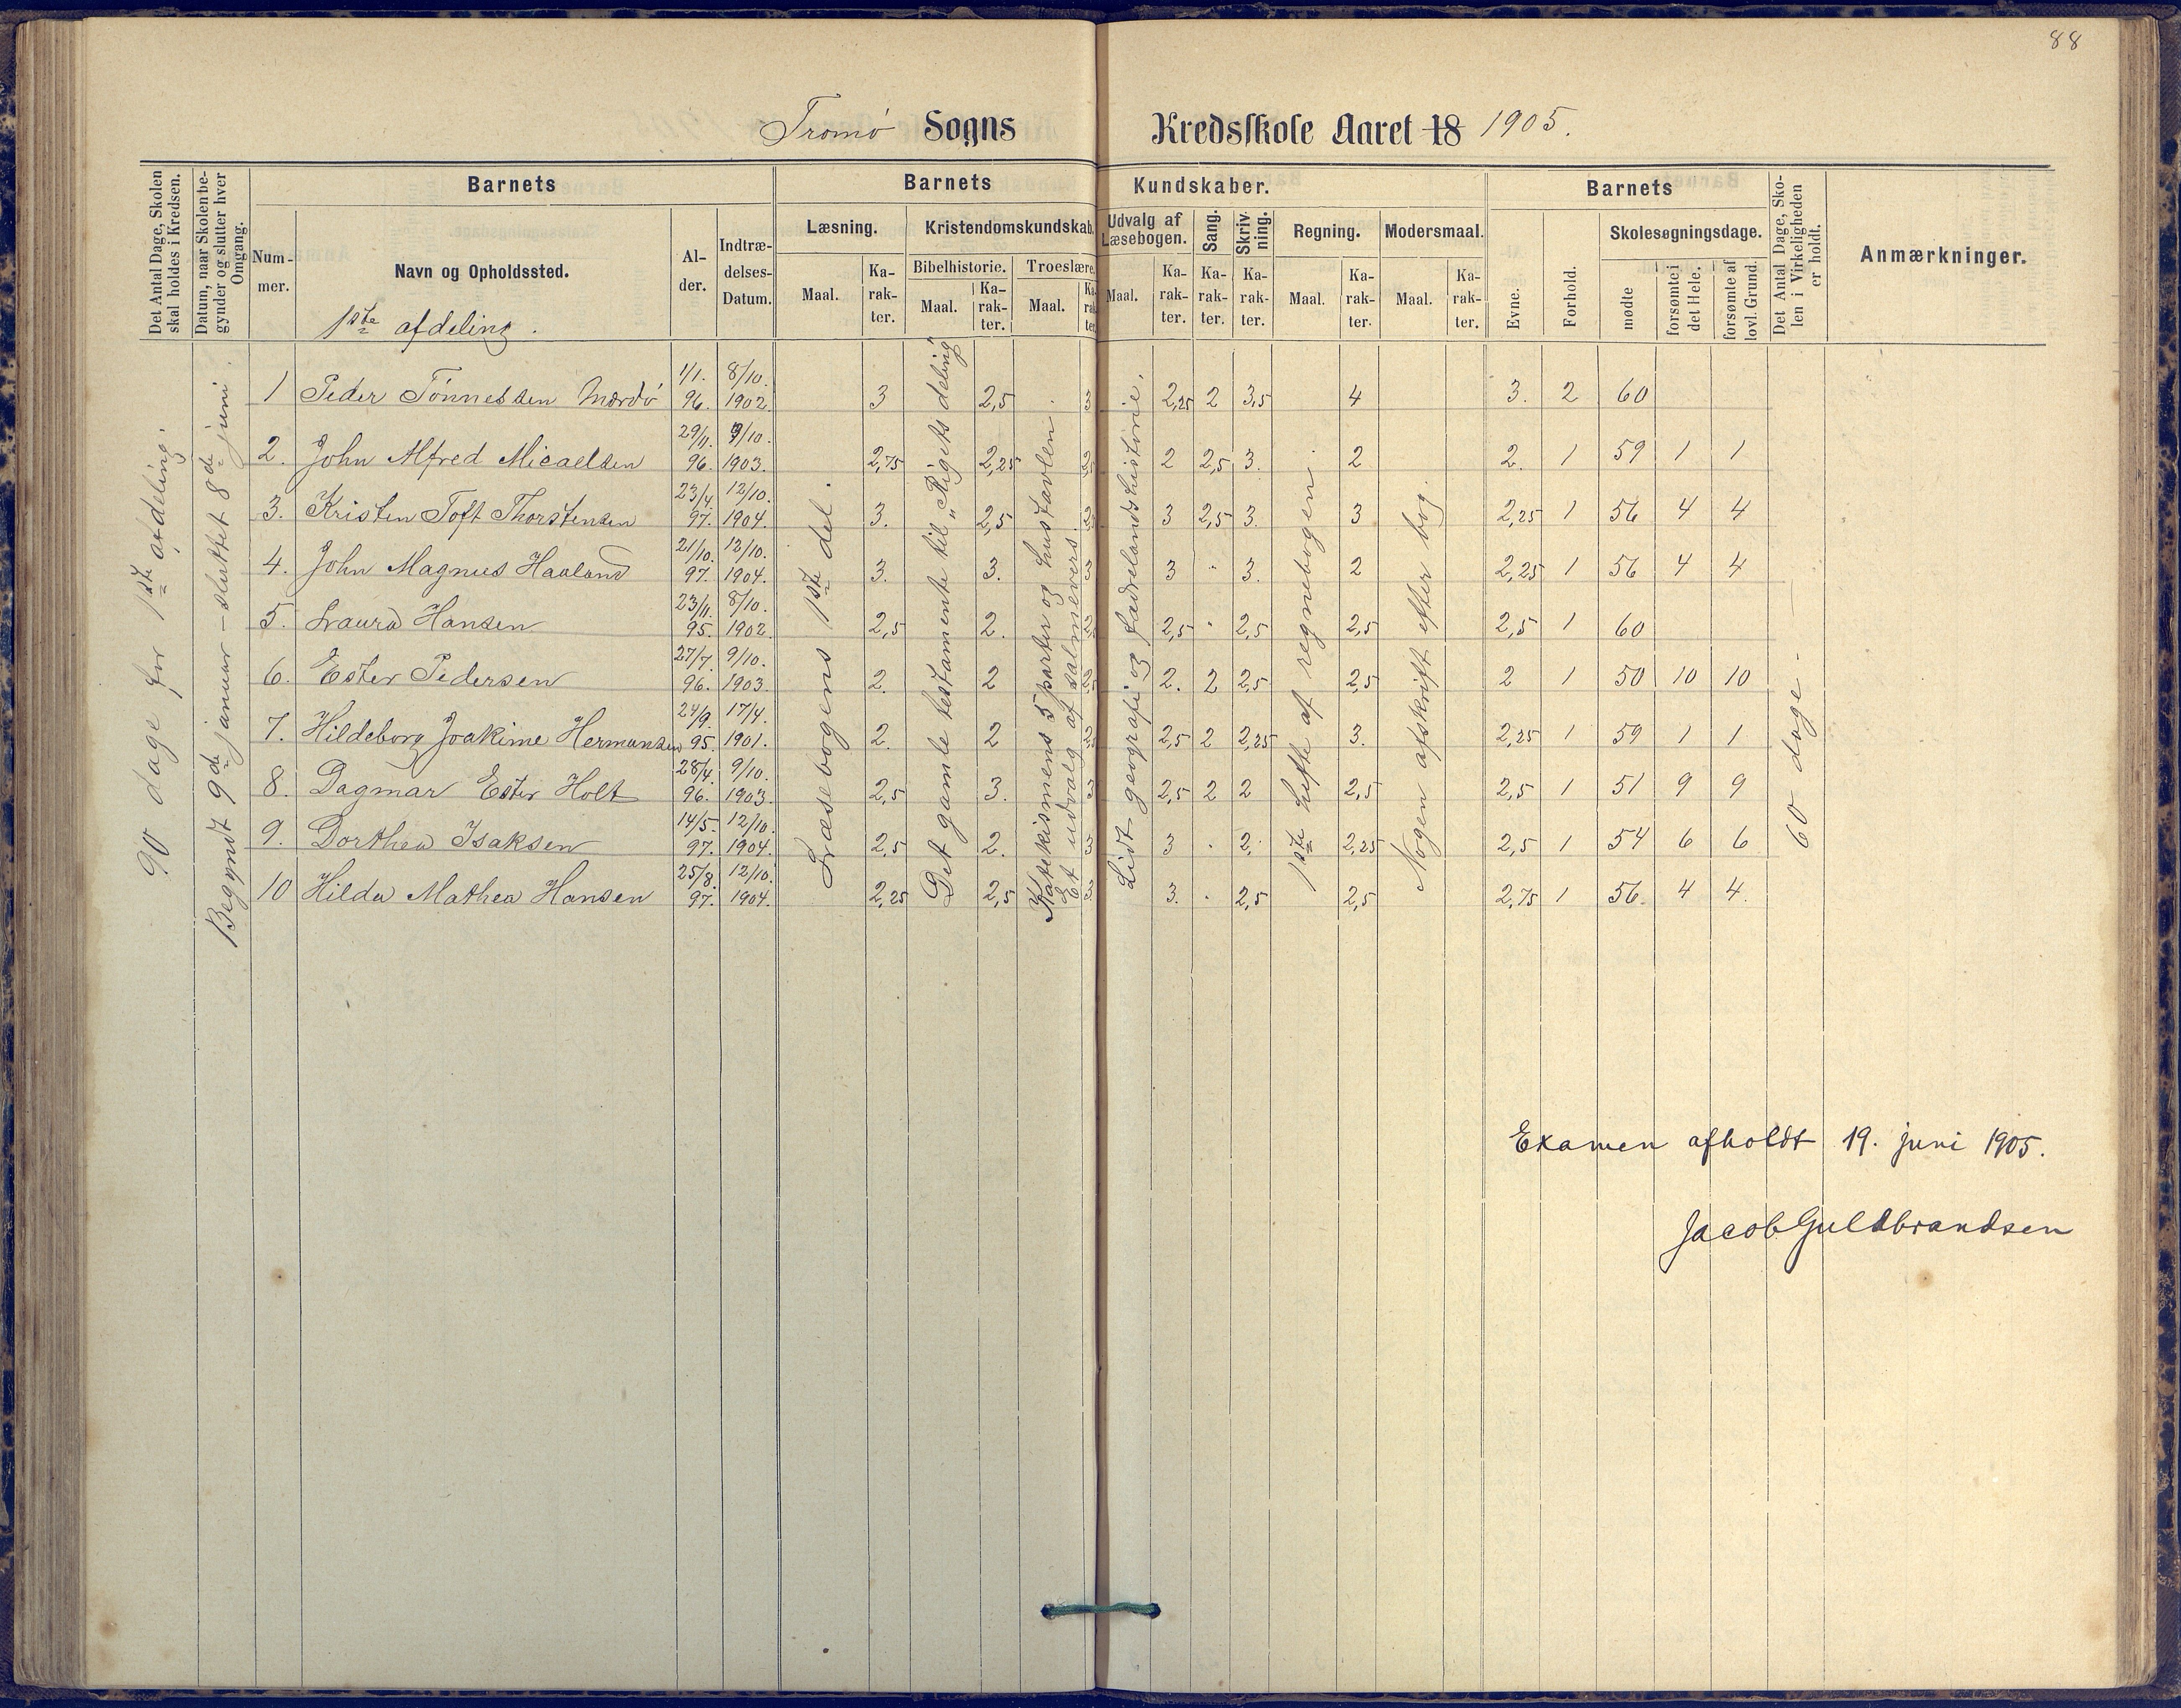 88
Tromø Sogns Kredsskole Aaret 18 1905.
Det Antal Dage, Skolen skal holdes i Kredsen.
Datum, naar Skolen begynder og slutter hver Omgang.
Barnets
Nummer.
Navn og Opholdssted.
1ste afdeling.
Alder.
Indtrædelses-Datum.
Barnets Kundskaber.
Læsning.
Maal.
Karakter.
Kristendomskundskab.
Bibelhistorie.
Maal.
Karakter.
Troeslære.
Maal.
Udvalg af Læsebogen.
Maal.
Karakter.
Sang.
Karakter.
Skrivning.
Karakter.
Regning.
Maal.
Karakter.
Modersmaal.
Maal.
Karakter.
Barnets
Evne.
Forhold.
Skolesøgningsdage.
mødte
forsømte i det Hele.
forsømte af lovl. Grund.
Det Antal Dage, Skolen i Virkeligheden er holdt.
Anmærkninger.
90 dage for 1ste afdeling.
Begyndt 9de januar – sluttet 8de juni.
Læsebogens 1ste del.
Det gamle testamente til „Rigets deling"
Katekismens 5 parter og hustavlen.
Et udvalg af salmevers.
Lidt geografi og fædrelandshistorie.
1ste hefte af regnebogen.
Nogen afskrift efter bog.
60 dage.
1 Peder Tønnessen Mærdø 1/1. 96. 8/10. 1902. 3 2,5 3 2,25 2 3,5 4 3. 2 60
2. John Alfred Micaelsen 29/11. 96. 9/10. 1903. 2,75 2,25 2 2,5 3. 2 2. 1 59 1 1
3. Kristen Toft Thorstensen 23/4. 97. 12/10. 1904. 3. 2,5 3 2,5 3. 3 2,25 1 56 4 4
4. John Magnus Haaland 21/10. 97. 12/10. 1904. 3. 3. 3 3 · 3. 2 2,25 1 56 4 4
5. Laura Hansen 23/11. 95. 8/10. 1902. 2,5 2. 2,5 · 2,5 2,5 2,5 1 60
6. Ester Pedersen 27/7. 96. 9/10. 1903. 2. 2 2. 2 2,5 2,5 2 1 50 10 10
7. Hildeborg Joakime Hermansen 24/9. 95. 17/4. 1901. 2. 2 2,5 2 2,25 3. 2,25 1 59 1 1
8. Dagmar Ester Holt 28/4. 96. 9/10. 1903. 2,5 3. 3 2,5 2 2 2,5 2,5 1 51 9 9
9. Dorthea Isaksen 14/5. 97. 12/10. 1904. 2,5 2. 3 3 · 2. 2,25 2,5 1 54 6 6
10 Hilda Mathea Hansen 25/8. 97. 12/10. 1904. 2,25 2,5 3. · 2,5 2,5 2,75 1 56. 4 4.
Examen afholdt 19. juni 1905.
Jacob Guldbrandsen